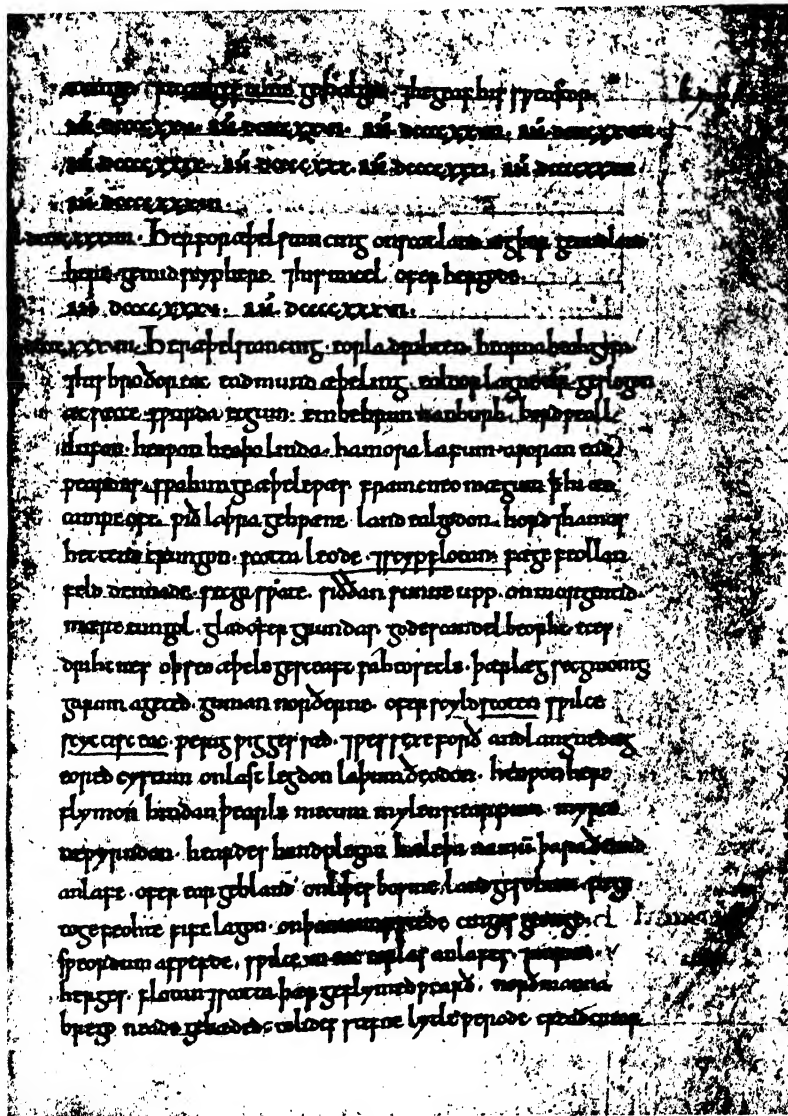 tune gehalgod ⁊ he geaf his sƿeostor
AÑ. dccccxxv. AÑ. dccccxxvi. AÑ. dccccxxvii. AÑ. dccccxxviii.
AÑ. dccccxxix. AÑ. dccccxxx. AÑ. dccccxxxi. AÑ. dccccxxxii.
AÑ. dccccxxxiii.
dccccxxxiiii. Her for æþelstan cing on scotland ægþer ge mid land
here ge mid scyphere ⁊ his micel ofer hergode.
AÑ dccccxxxv. AÑ. dccccxxxvi.
dccccxxxvii. Her aþelstan cing eorla drihten beorna beahgifa
⁊ his broðor eac eadmund æþeling ealdor lagne tir geslogon
æt sæcce sƿurda ecgum embe brunnanburh bord ƿeall
clufon heoƿon heaþolinda hamora lafum aforan ead
ƿeardes sƿa him geæþele ƿæs fram cneomægum þ hi æt
campe oft ƿið laþra gehƿæne land ealgodon hord ⁊ hamas
hettend crungon scotta leode ⁊ scypflotan fæge feollan
feld dennade secga sƿate siððan sunne upp on morgentid
mære tungol glad ofer grundas godes candel beorht eces
drihtnes oþ seo æþele gesceaft sah to setle þær læg secg monig
garum ageted guman norðerne ofer scyld scoten sƿilce
scyttisc eac ƿerig ƿigges sæd ⁊ ƿessexe forð andlangne dæg
eored cystum on last legdon laþum ðeodon heoƿon here
flymon hindan þearle mecum mylenscearpum myrce
ne ƿyrndon heardes handplegan hæleþa nanum þara ðe mid
anlafe ofer ear gebland on liþes bosme land gesohtan fæge
to gefeohte fife lagon on þam stede cingas geonge
sƿeordum asƿefde sƿilce vii eac eorlas anlafes unrim
herges flotan ⁊ scotta þær geflymed ƿearð norðmanna
brego neade gebæded to lides stefne lytle ƿerode